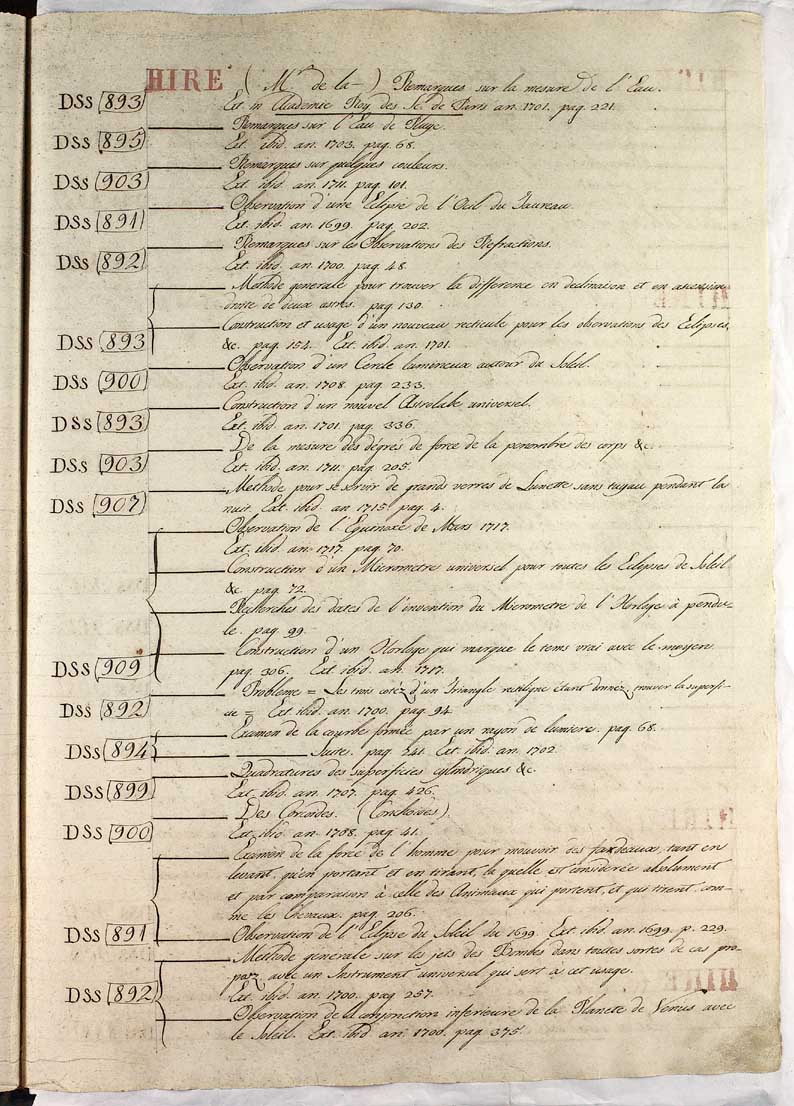 HIRE (Mr. de la –) Remarques sur la mesure de l'Eau.
DSS 893 Ext. in Academie Roy. des Sc. de Paris an. 1701. pag. 221.
Remarques sur l'Eau de Pluye.
DSS 895 Ext. ibid. an. 1703. pag. 68.
Remarques sur quelques couleurs.
DSS 903 Ext. ibid. an. 1711. pag. 101.
Observation d'une Eclipse de l'Oeil du Taureau.
DSS 891 Ext. ibid. an. 1699. pag. 202.
Remarques sur les Observations des Refractions.
DSS 892 Ext. ibid. an. 1700. pag. 48.
Methode generale pour trouver la difference en declinaison et en ascension
droite de deux astres. pag. 130.
Construction et usage d'un nouveau recticule pour les observations des Eclipses,
DSS 893 &c. pag. 154. Ext. ibid. an. 1701.
Observation d'un Cercle lumineux autour du Soleil.
DSS 900 Ext. ibid. an. 1708. pag. 233.
Construction d'un nouvel Astrolabe universel.
DSS 893 Ext. ibid. an. 1701. pag. 336.
De la mesure des degrés de force de la penombre des corps &c.
DSS 903 Ext. ibid. an. 1711. pag. 205.
Methode pour se servir de grands verres de Lunette sans tuyau pendant la
DSS 907 nuit. Ext. ibid. an 1715. pag. 4.
Observation de l'Equinoxe de Mars 1717.
Ext. ibid. an. 1717. pag. 70.
Construction d'un Micrometre universel pour toutes les Eclipses de Soleil
&c. pag. 72.
Recherches des dates de l'invention du Micrometre de l'Horloge à pendu-
le. pag. 99.
Construction d'un Horloge qui marque le tems vrai avec le moyen
DSS 909 pag. 306. Ext. ibid. an. 1717.
Probleme = Les trois cotéz d'un Triangle restiligne étant donnéz, trouver la superfi-
DSS 892 cie = Ext. ibid. an. 1700. pag. 94.
Examen de la courbe formée par un rayon de lumiere. pag. 68.
DSS 894 Suite. pag. 241. Ext. ibid. an. 1702.
Quadratures des superficies cylindriques &c.
DSS 899 Ext. ibid. an. 1707. pag. 426.
Des Concoides. (Conchoïdes).
DSS 900 Ext. ibid. an. 1708. pag. 41.
Examen de la force de l'homme pour mouvoir des fardeaux, tant en
levant, qu'en portant et en tirant, la quelle est considerée absolument
et par comparaison à celle des Animaux qui portent, et qui tirent com-
me les Chevaux. pag. 206.
DSS 891 Observation de l'Eclipse du Soleil du 1699. Ext. ibid. an. 1699. p. 229.
Methode generale sur les jets des Bombes dans toutes sortes de cas pro-
poséz avec un Instrument universel qui sert à cet usage.
DSS 892 Ext. ibid. an. 1700. pag. 257.
Observation de la conjonction inferieure de la Planete de Venus avec
le Soleil. Ext. ibid. an. 1700. pag. 375.